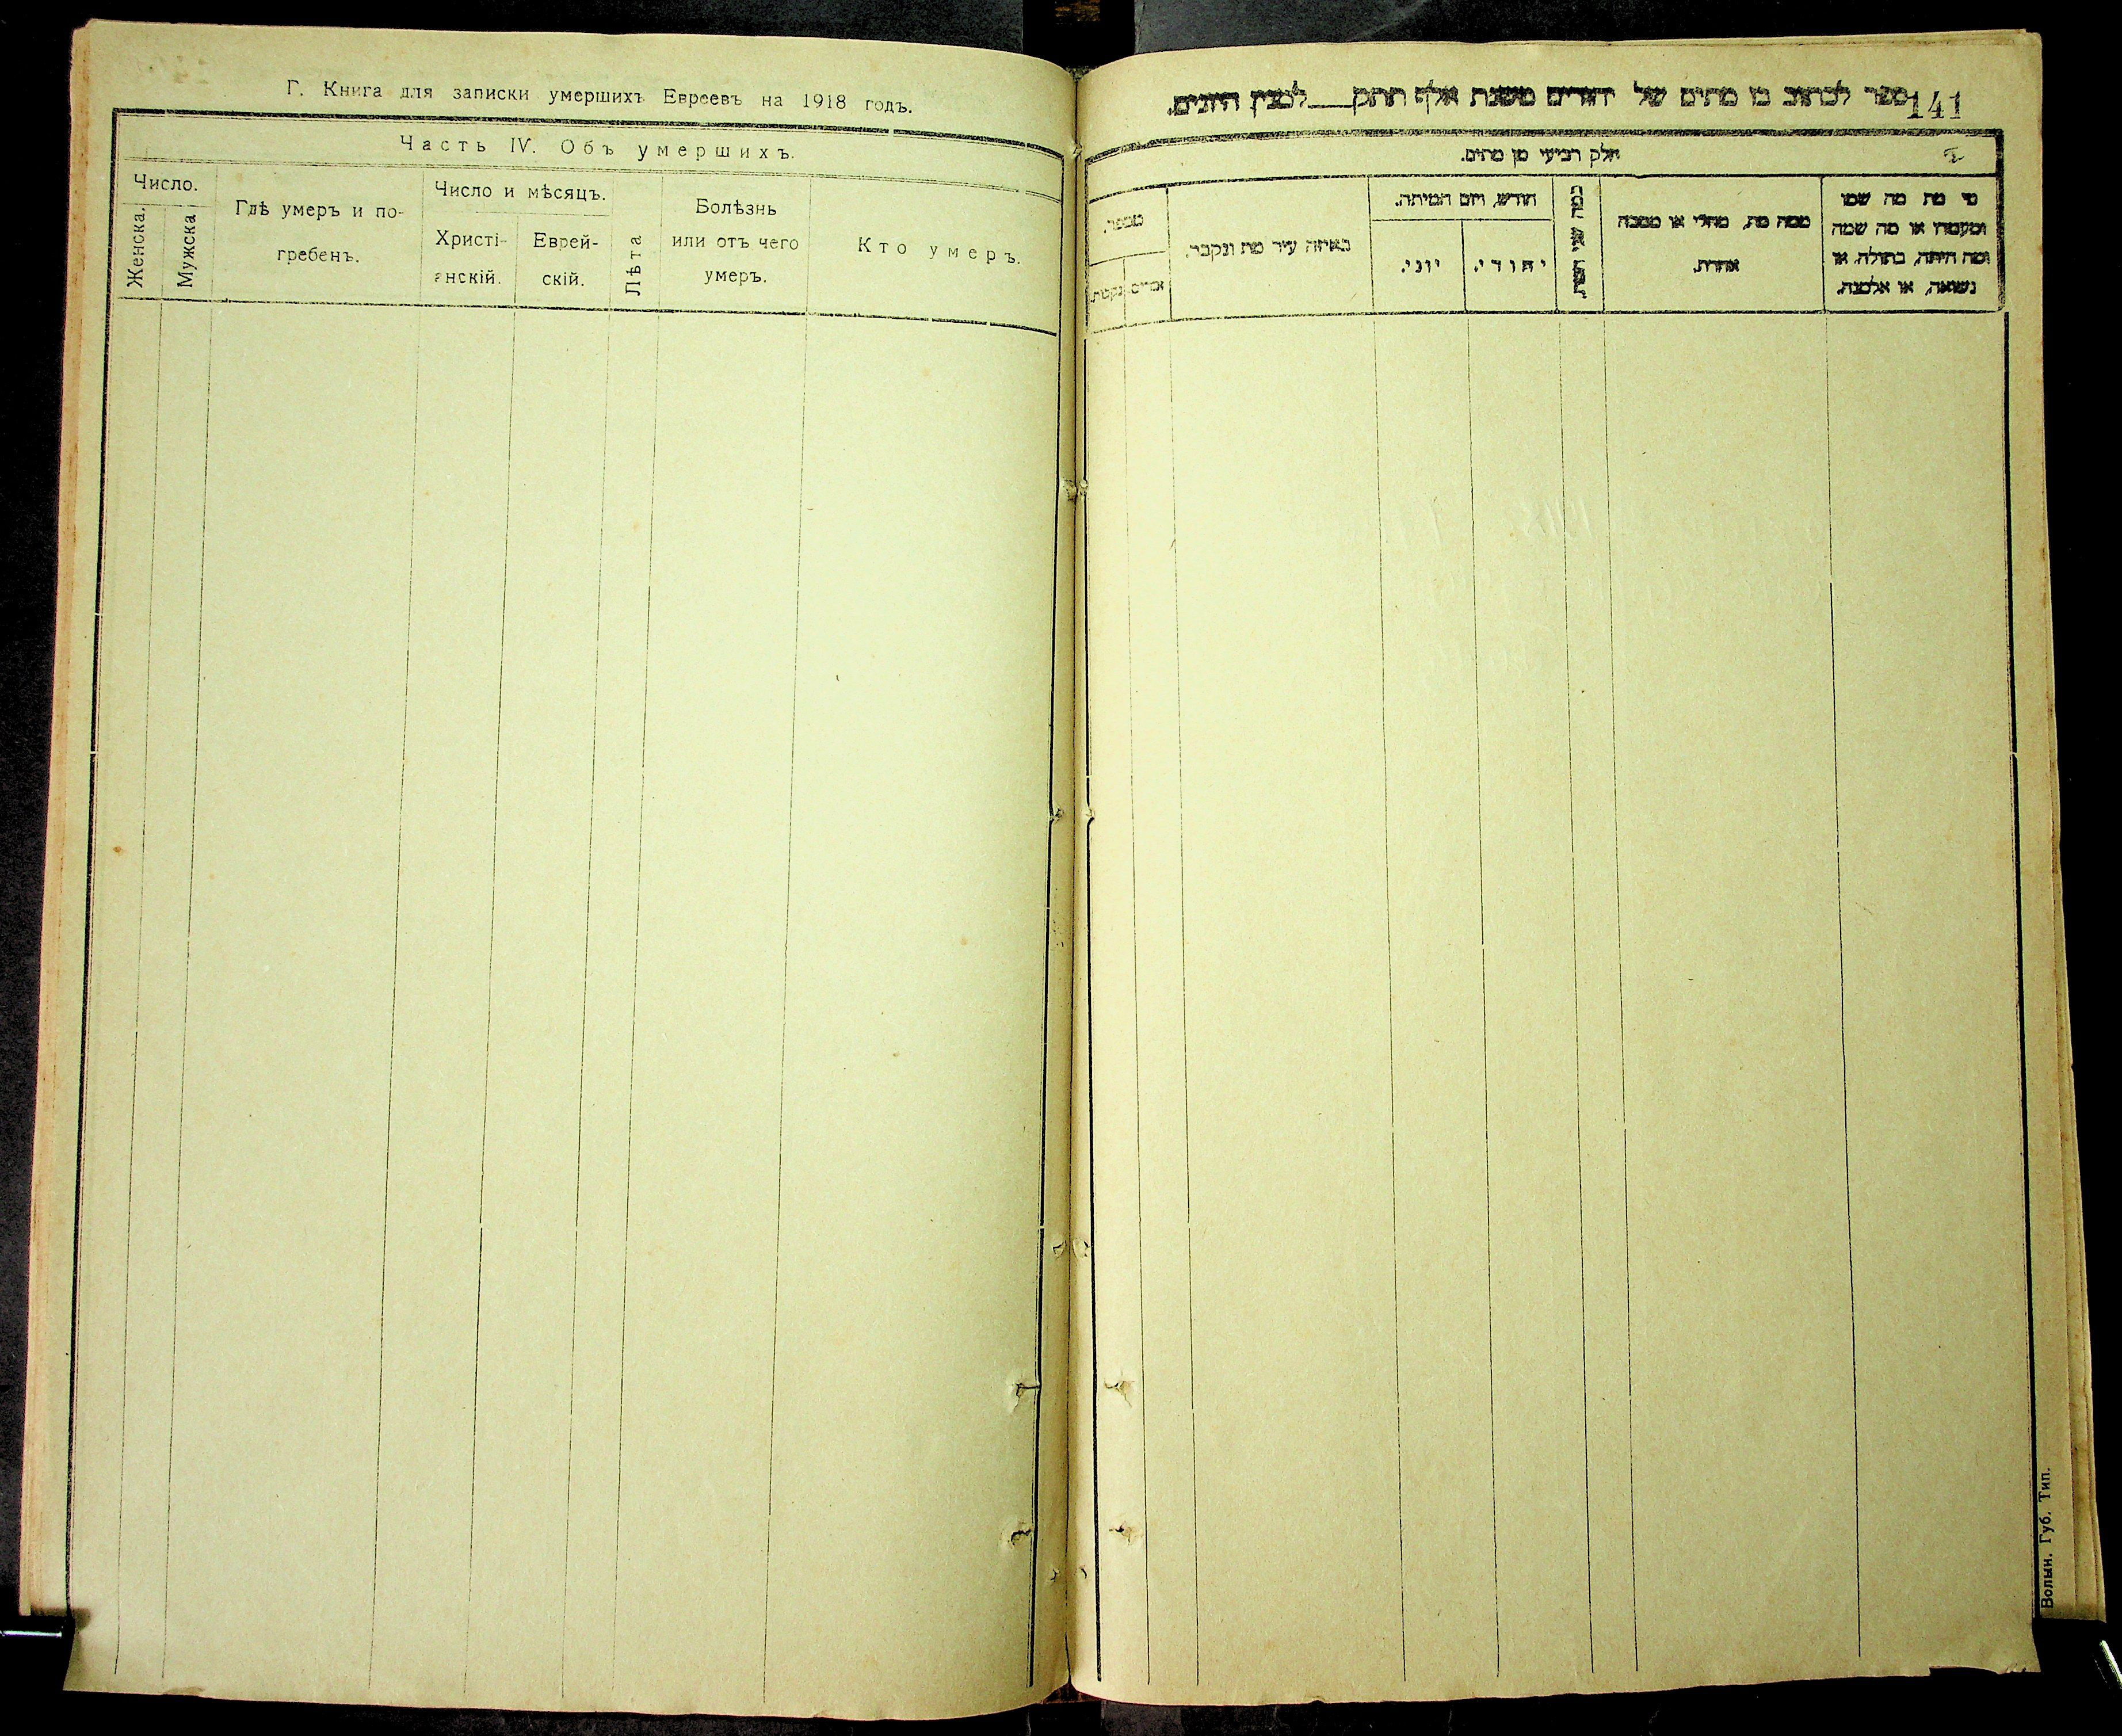 Г. Книга для записки умершихъ Евреевъ на 1918 годъ.
Часть IV. Объ умершихъ.
Число.
Женска.
Мужска
Гдѣ умеръ и по-
гребенъ.
Число и мѣсяцъ.
Христі-
анскій.
Еврей-
скій.
Лѣта
Болѣзнь
или отъ чего
умеръ.
Кто умеръ.
ספר לכתוב בו מתים של יהודים משנת אלף תתק לכמנין היונים.
141
חלק רביעי מן מתים.
מספר.
באיזה עיר מת ונקבר.
חודש, ויום המיתה.
יוני.
יהודי.
ממה מת, מחלי או מסבה
אחרת.
מי מת מה שמו
ומעמדו או מה שמה
ומה היתה, בתולה, או
נשואה, או אלמנה.
Волын. Губ. Тип.